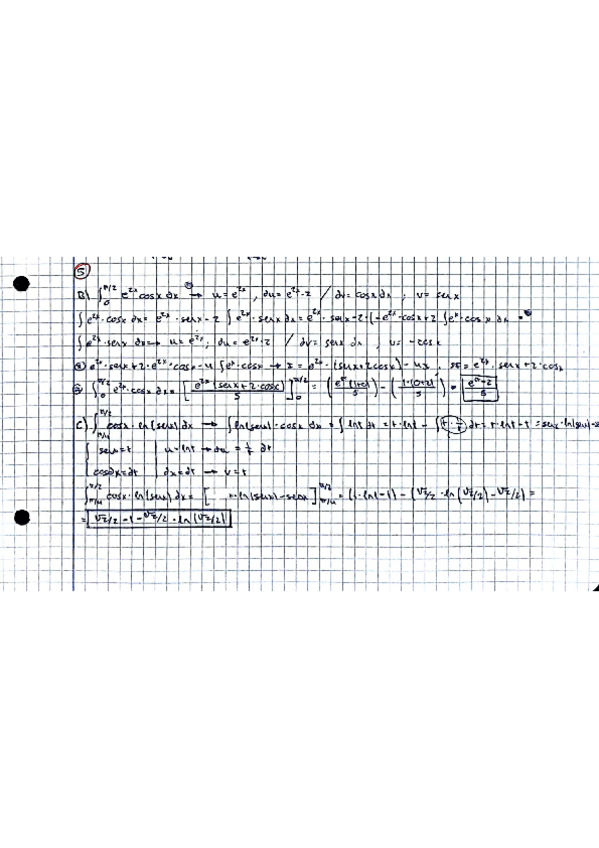 5
B) ∫₀^(π/2) e^(2x) cosx dx → u = e^(2x), du = e^(2x)·2 / dv = cosx dx ; v = senx
∫ e^(2x)·cosx dx = e^(2x)·senx - 2 ∫ e^(2x)·senx dx = e^(2x)·senx - 2·(-e^(2x)·cosx + 2 ∫ e^(2x)·cosx) dx =
∫ e^(2x)·senx dx → u = e^(2x); du = e^(2x)·2 / dv = senx dx ; v = -cosx
e^(2x)·senx + 2·e^(2x)·cosx - 4 ∫ e^x·cosx → I = e^(2x)·(senx + 2cosx) - 4I, 5I = e^(2x)·senx + 2·cosx
∫₀^(π/2) e^(2x)·cosx dx = [e^(2x)·(senx + 2·cosx) / 5]₀^(π/2) = (e^π(1+0) / 5) - (1·(0+2) / 5) = (e^π - 2) / 5
C) ∫_(π/4)^(π/2) cosx·ln(senx) dx → ∫ ln(senx)·cosx dx = ∫ lnt dt = t·lnt - ∫ t·1/t dt = t·lnt - t = senx·ln(senx) - s
senx = t | u = lnt → du = 1/t dt
cosdx = dt | dx = dt → v = t
∫_(π/4)^(π/2) cosx·ln(senx) dx = [ ·ln(senx) - senx]_(π/4)^(π/2) = (1·ln1 - 1) - (√2/2·ln(√2/2) - √2/2) =
= √2/2 - 1 - √2/2·ln(√2/2)